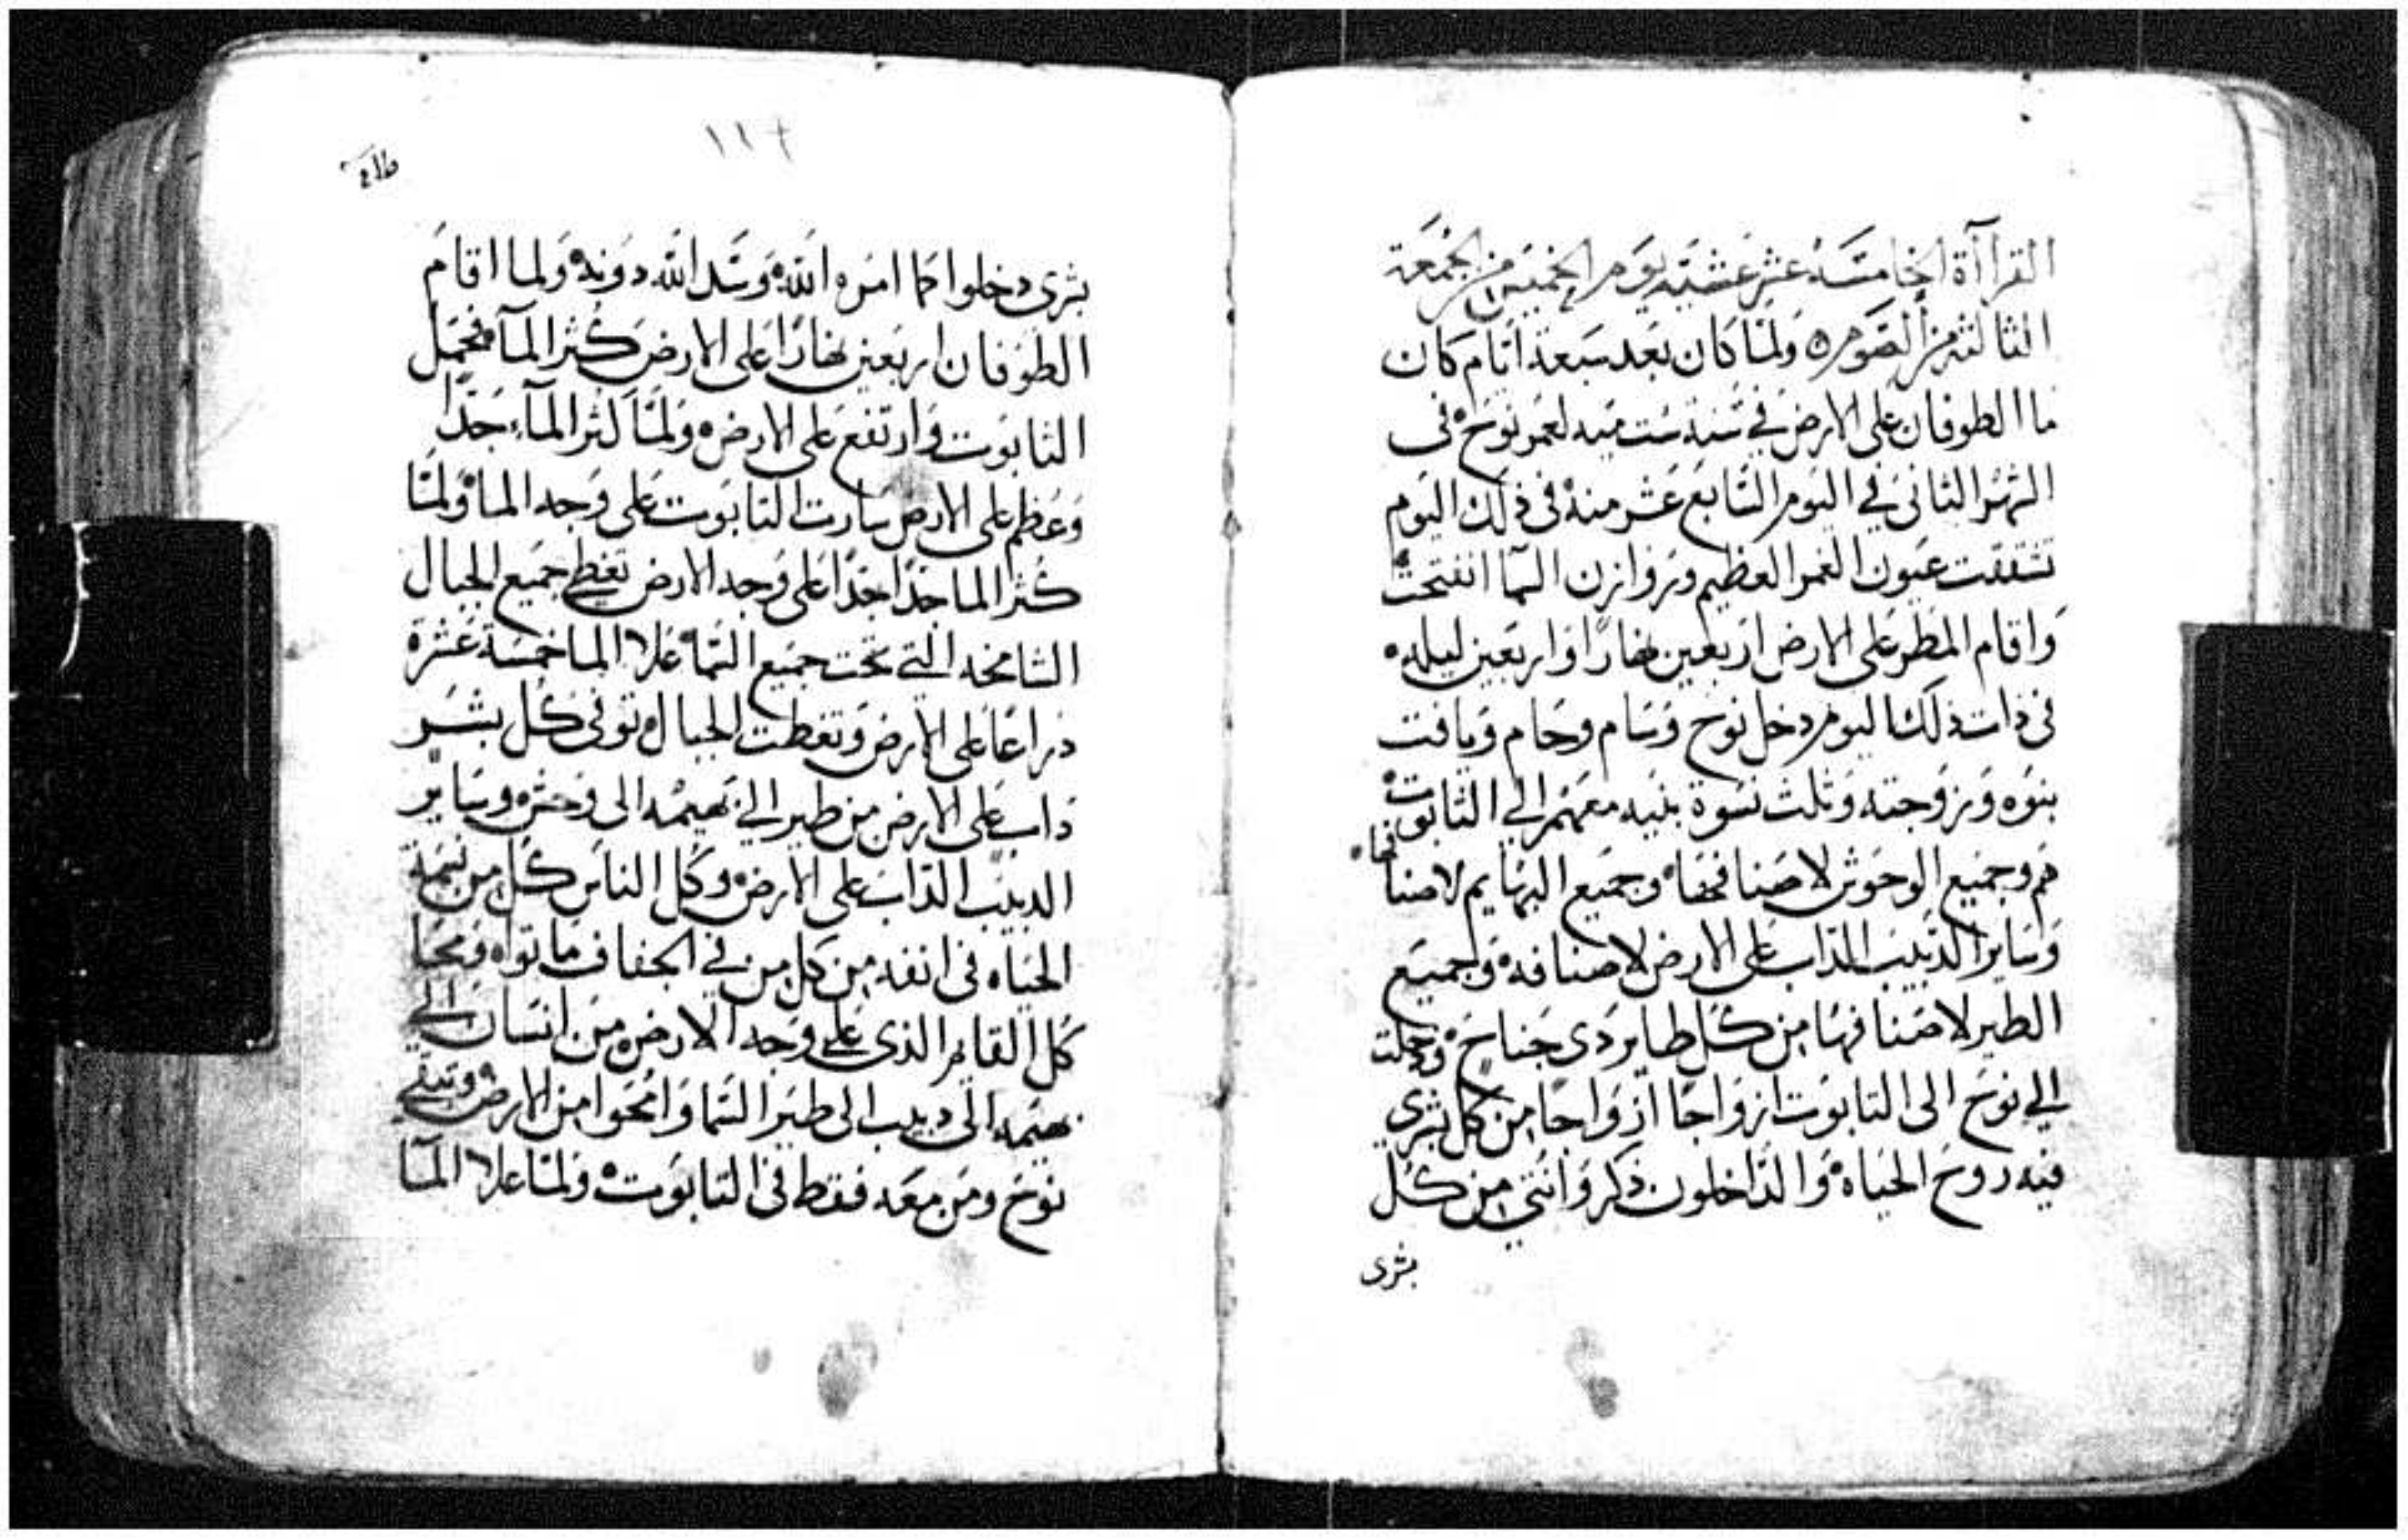 القراآة الخامسة عشر عشية يوم الخميس من الجمعة
الثالثة من الصوم ه ولما كان بعد سبعة ايام كان
ما الطوفان على الارض في سنة ست ميه لعمر نوح ه في
الشهر الثاني في اليوم السابع عشر منه في ذلك اليوم
تشققت عيون الغمر العظيم وروازن السما انفتحت
واقام المطر على الارض اربعين نهارا واربعين ليله ه
في ذات ذلك اليوم دخل نوح وسام وحام ويافت
بنوه وزوجته وثلث نسوة بنيه معهم الى التابوت ه
هم وجميع الوحوش لاصنافها ه وجميع البهايم لاصنافها ه
وساير الدبيب الداب على الارض لاصنافه ه وجميع
الطير لاصنافها من كل طاير دى جناح ه ودخلت
الي نوح الى التابوت ازواجا ازواجا من كل بشرى
فيه روح الحياه ه والداخلون ذكر وانثي من كل
بشرى
١١٦
بشرى دخلوا كما امره الله ه وسد الله دونه ه ولما اقام
الطوفان اربعين نهارا على الارض كثر الماء فحمل
التابوت وارتفع على الارض ه ولما كثر الماء جدا
وعظم على الارض سارت التابوت على وجه الما ه ولما
كثر الما جدا جدا على وجه الارض تغطي جميع الجبال
الشامخه التي تحت جميع السما ه علا الما خمسة عشرة
ذراعا على الارض وتغطت الجبال ه توفى كل بشر
داب على الارض من طير الي بهيمه الى وحش ه وساير
الدبيب الداب على الارض ه وكل الناس كل من نسمة
الحياه فى انفه من كل من في الجفاف ماتوا ه ومحا
كل القايم الذى على وجه الارض من انسان الي
بهيمه الى دبيب الى طير السما وامحوا من الارض ه وتبقي
نوح ومن معه فقط فى التابوت ه ولما علا الما